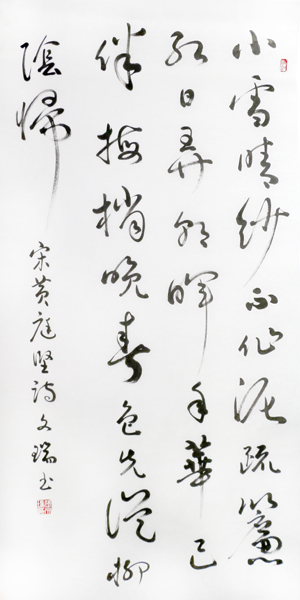 小雪晴紗不作泥疏簾
紅日弄朝暉年華已
伴梅梢晚春色先從柳
陰歸
宋黃庭堅詩文瑞书